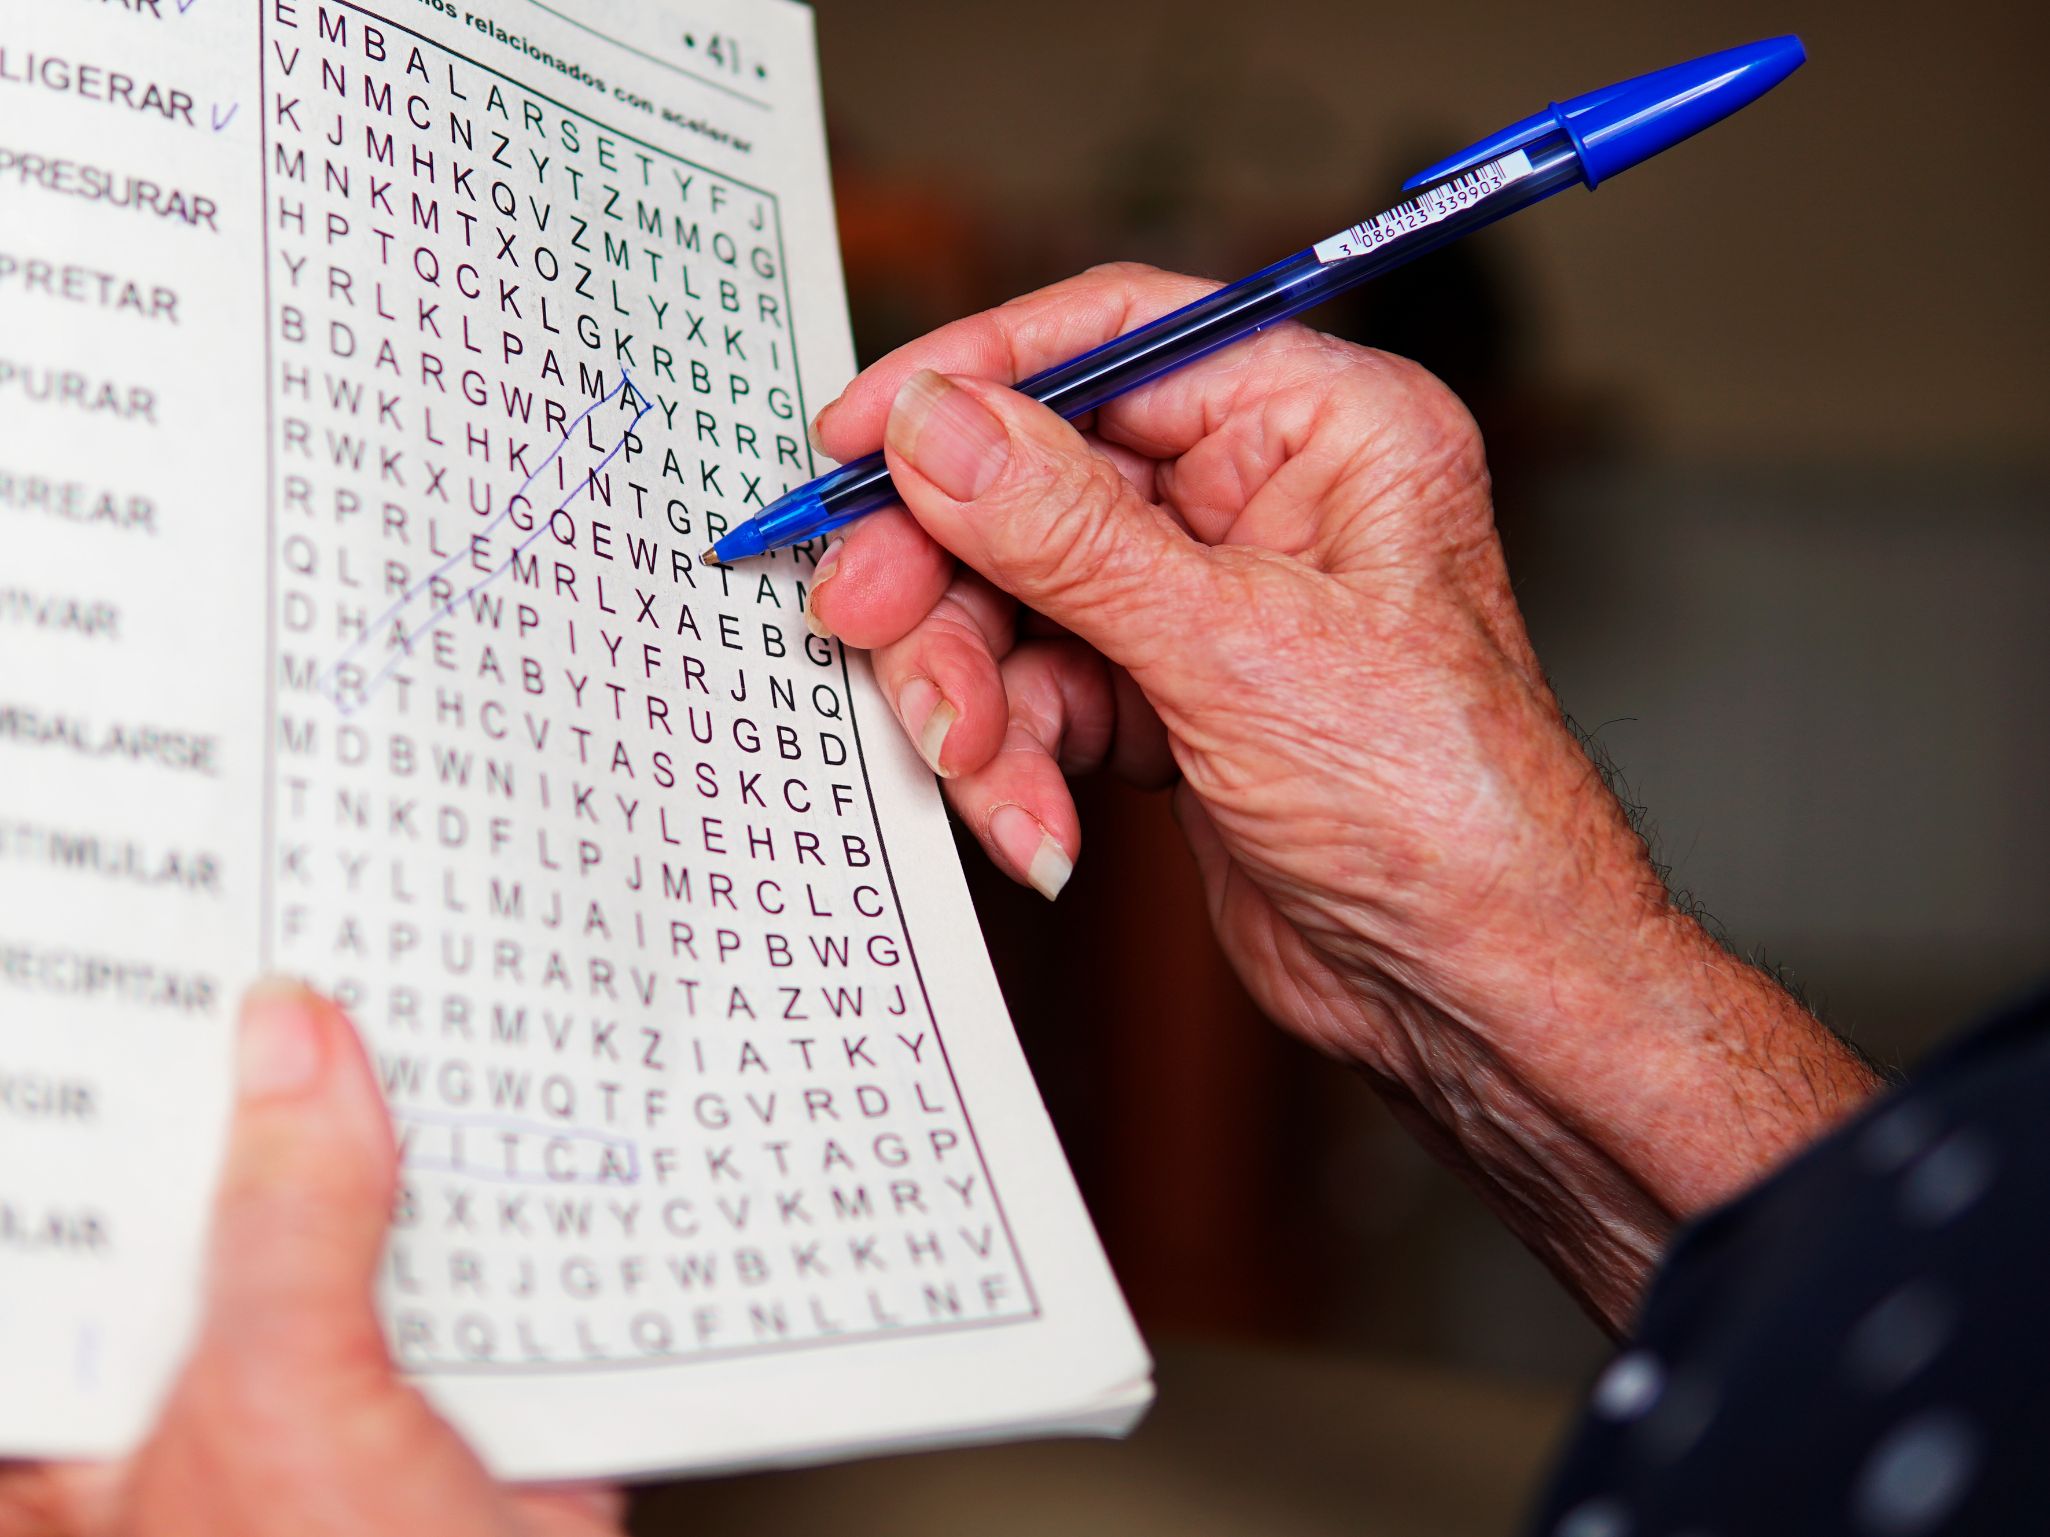 • 41 •
relacionados con acelerar
LIGERAR
PRESURAR
PRETAR
PURAR
RREAR
VIVAR
MBALARSE
TIMULAR
RECIPITAR
GIR
LAR
E M B A L A R S E T Y F J
V N M C N Z Y T Z M M Q G
K J M H K Q V Z M T L B R
M N K M T X O Z L Y X K I
H P T Q C K L G K R B P G
Y R L K L P A M A Y R R R
B D A R G W R L P A K X
H W K L H K I N T G R R
R W K X U G Q E W R T A N
R P R L E M R L X A E B G
Q L R R W P I Y F R J N Q
D H A E A B Y T R U G B D
M R T H C V T A S S K C F
M D B W N I K Y L E H R B
T N K D F L P J M R C L C
K Y L L M J A I R P B W G
F A P U R A R V T A Z W J
P R R M V K Z I A T K Y
W G W Q T F G V R D L
I T C A F K T A G P
X K W Y C V K M R Y
L R J G F W B K K H V
R Q L L Q F N L L N F
3 086123 339903